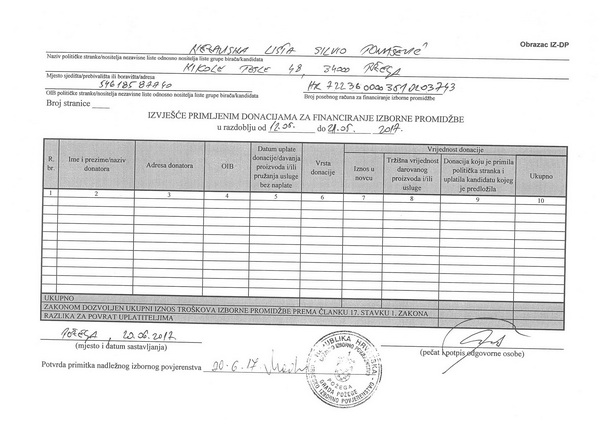 Obrazac IZ-DP
NEZAVISNA LISTA SILVIO TOMAŠEVIĆ
Naziv političke stranke/nositelja nezavisne liste odnosno nositelja liste grupe birača/kandidata
NIKOLE TESLE 48, 34000 POŽEGA
Mjesto sjedišta/prebivališta ili boravišta/adresa
HR
OIB političke stranke/nositelja nezavisne liste odnosno nositelja liste grupe birača/kandidata Broj posebnog računa za financiranje izborne promidžbe
Broj stranice
IZVJEŠĆE PRIMLJENIM DONACIJAMA ZA FINANCIRANJE IZBORNE PROMIDŽBE
u razdoblju od do 2017.
R. br. Ime i prezime/naziv donatora Adresa donatora OIB Datum uplate donacije/davanja proizvoda i/ili pružanja usluge bez naplate Vrsta donacije Vrijednost donacije
Iznos u novcu Tržišna vrijednost darovanog proizvoda i/ili usluge Donacija koju je primila politička stranka i uplatila kandidatu kojeg je predložila Ukupno
1 2 3 4 5 6 7 8 9 10
UKUPNO
ZAKONOM DOZVOLJEN UKUPNI IZNOS TROŠKOVA IZBORNE PROMIDŽBE PREMA ČLANKU 17. STAVKU 1. ZAKONA
RAZLIKA ZA POVRAT UPLATITELJIMA
POŽEGA, 20.06.2017
(mjesto i datum sastavljanja) (pečat i potpis odgovorne osobe)
Potvrda primitka nadležnog izbornog povjerenstva 20-6-17
REPUBLIKA HRVATSKA
POŽEGA
GRADA POŽEGE